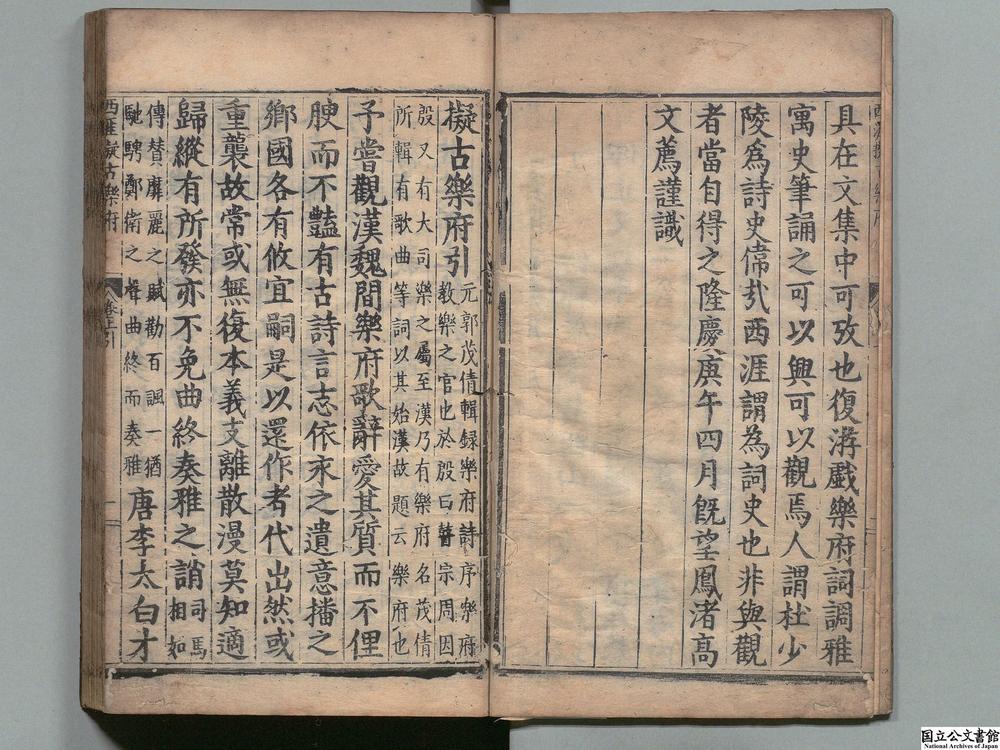 具在文集中可攷也復游戲樂府詞調雅
寓史筆誦之可以興可以觀焉人謂杜少
陵爲詩史僃於西涯謂為詞史也非與觀
者當自得之隆慶庚午四月旣望鳳渚高
文薦謹識
擬古樂府引
元郭茂倩輯録樂府詩序樂府
教樂之官也於殷曰瞽宗周因
殷又有大司樂之屬至漢乃有樂府名茂倩
所輯有歌曲等詞以其始漢故題云樂府也
予嘗觀漢魏間樂府歌辭愛其質而不俚
腴而不豔有古詩言志依永之遺意播之
鄉國各有攸宜嗣是以還作者代出然或
重襲故常或無復本義支離散漫莫知適
歸縱有所發亦不免曲終奏雅之誚
司馬
相如
傳賛靡麗之賦勸百諷一猶
馳騁鄭衛之聲曲終而奏雅
唐李太白才
西涯擬古樂府
卷上引
一
国立公文書館
National Archives of Japan